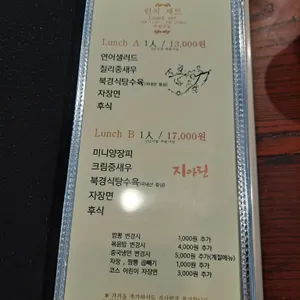 런치 세트
Lunch set
Lunch A 1人 / 13,000원
연어샐러드
칠리중새우
북경식탕수육
자장면
후식
Lunch B 1人 / 17,000원
미니양장피
크림중새우
북경식탕수육
자장면
후식
짬뽕 변경시 1,000원 추가
볶음밥 변경시 4,000원 추가
중국냉면 변경시 5,000원 추가(계절메뉴)
자장 , 짬뽕 곱빼기 1,000원 추가
코스 어린이 자장면 3,000원 추가